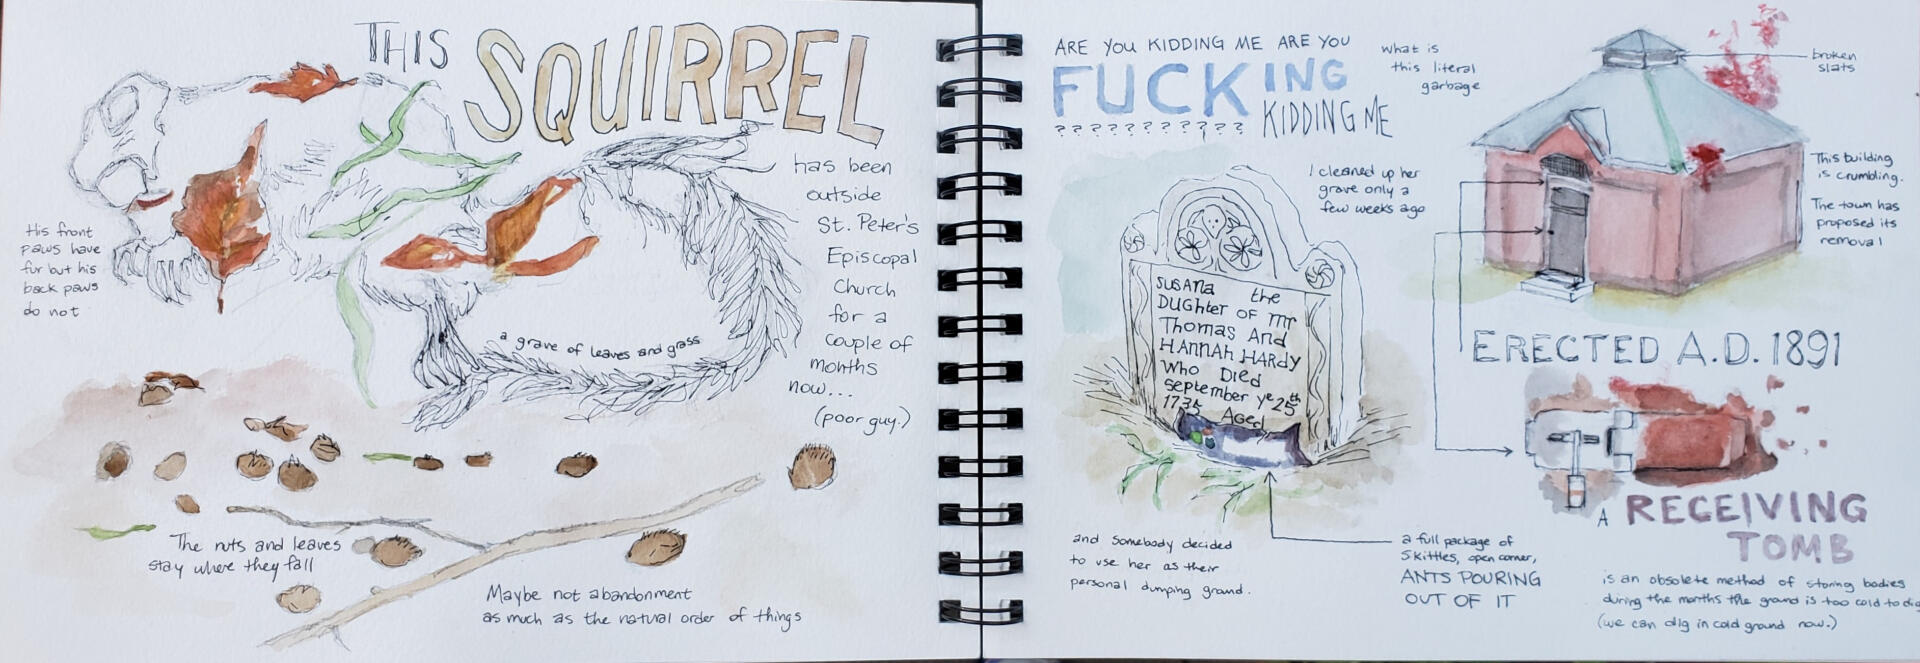 THIS
SQUIRREL
has been
outside
St. Peter's
Episcopal
Church
for a
couple of
months
now...
(poor guy.)
His front
paws have
fur but his
back paws
do not
a grave of leaves and grass
The nuts and leaves
stay where they fall
Maybe not abandonment
as much as the natural order of things
ARE YOU KIDDING ME ARE YOU
FUCKING
KIDDING ME
? ? ? ? ? ? ? ? ? ? ?
what is
this literal
garbage
I cleaned up her
grave only a
few weeks ago
SUSANA the
DUGhter OF Mr
Thomas And
HANNAH HARDY
Who Died
September ye 25th
1735 Aged
and somebody decided
to use her as their
personal dumping ground.
a full package of
Skittles, open corner,
ANTS POURING
OUT OF IT
broken
slats
This building
is crumbling.
The town has
proposed its
removal
ERECTED A.D. 1891
A RECEIVING
TOMB
is an obsolete method of storing bodies
during the months the ground is too cold to dig
(we can dig in cold ground now.)